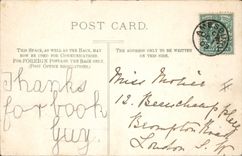 POST CARD.
THIS SPACE, AS WELL AS THE BACK, MAY
NOW BE USED FOR COMMUNICATIONS.
FOR FOREIGN POSTAGE THE BACK ONLY.
(POST OFFICE REGULATIONS.)
THE ADDRESS ONLY TO BE WRITTEN
ON THIS SIDE.
Thanks
for book
Guy.
Miss
12,
Brompton Road
London S.W